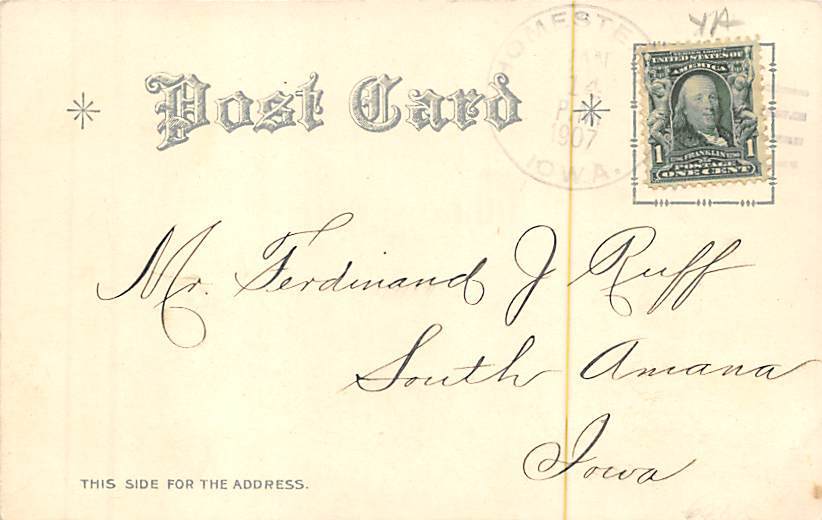 YA
Post Card
HOMESTE
14
1907
IOWA.
UNITED STATES OF
AMERICA
1 FRANKLIN 1
POSTAGE
ONE CENT
Mr. Ferdinand J Ruff
South Amana
Iowa
THIS SIDE FOR THE ADDRESS.